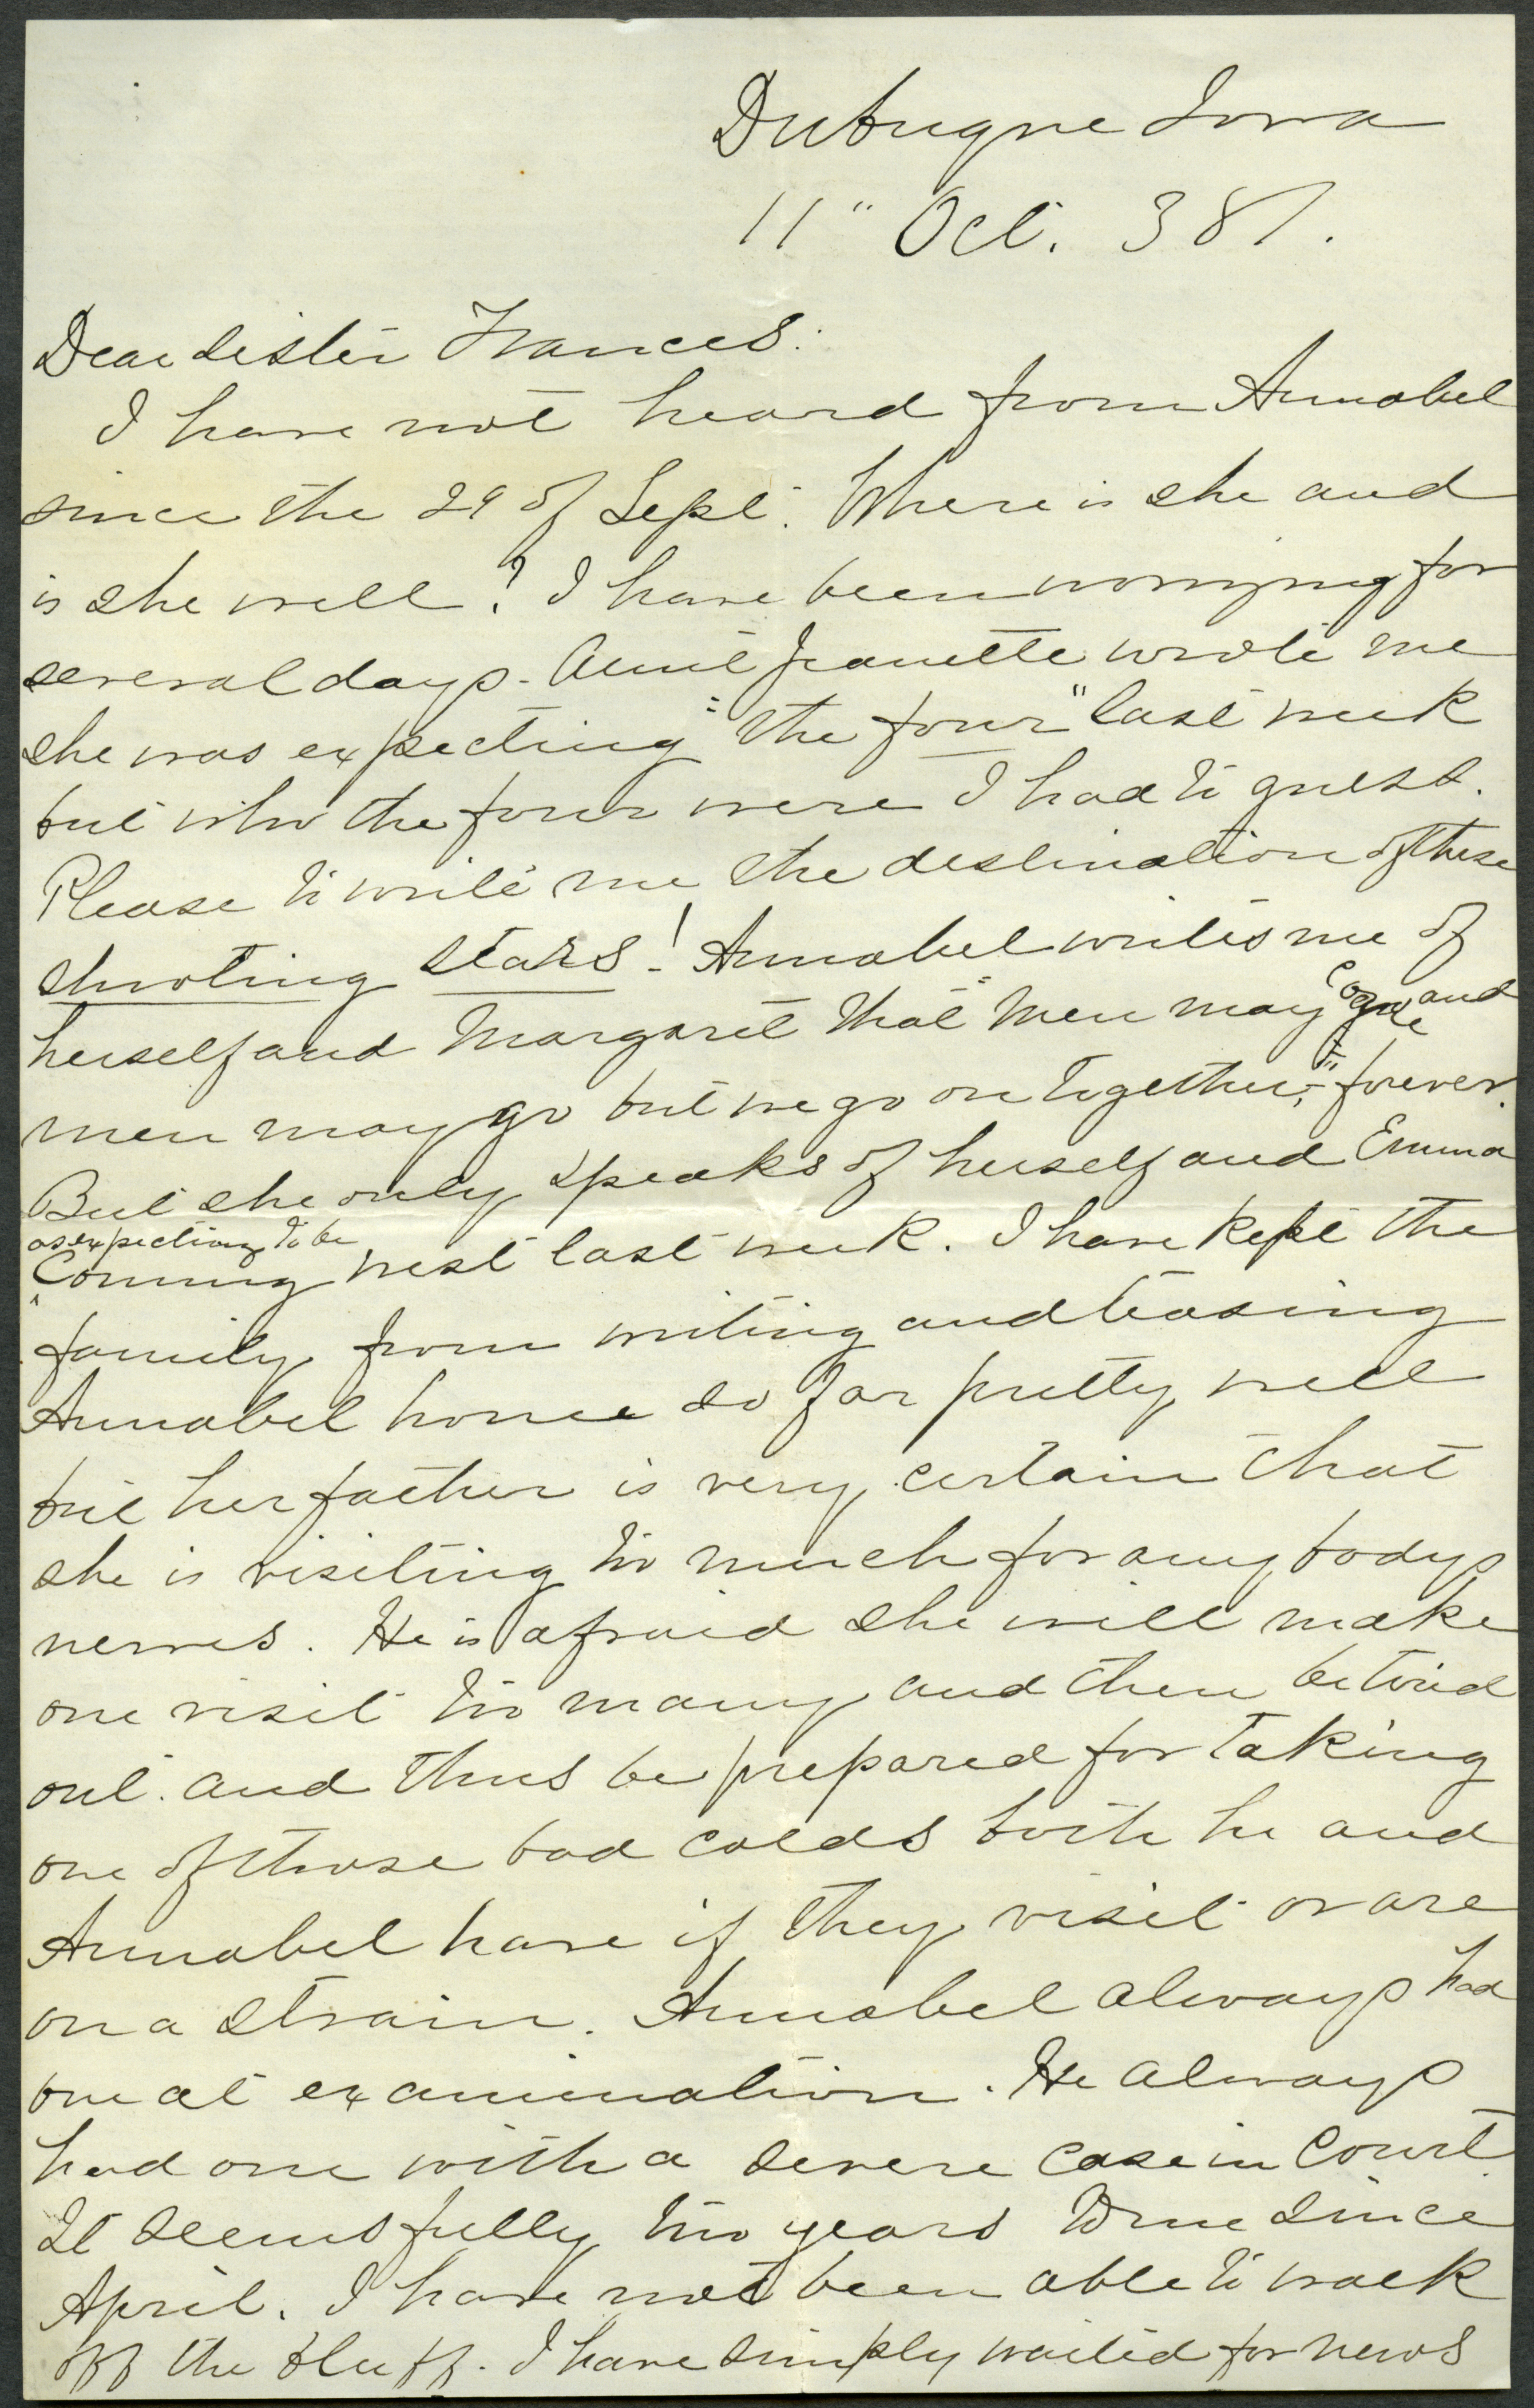 Dubuque Iowa
11" Oct. 387.
Dear Sister Frances:
I have not heard from Annabel
since the 29 of Sept. Where is she and
is she well? I have been worrying for
several days. Aunt Jeanette wrote me
she was expecting "the four" last week
but who the four were I had to guess.
Please to write me the destination of these
shooting stars! Annabel writes me of
herself and Margaret that "Men may come and
men may go but we go on together, forever."
But she only speaks of herself and Emma
as expecting to be
coming west last week. I have kept the
family from writing and teasing
Annabel home so far pretty well
but her father is very certain that
she is visiting too much for any bodys
nerves. He is afraid she will make
one visit too many and then be tired
out. and thus be prepared for taking
one of those bad colds both he and
Annabel have if they visit or are
on a strain. Annabel always had
one at examination. He always
had one with a severe case in Court.
It seems fully two years to me since
April. I have not been able to walk
off the bluff. I have simply waited for news